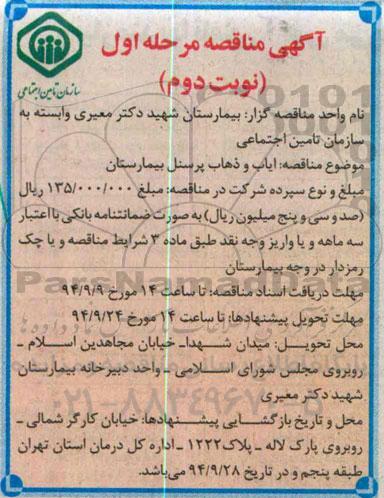 آگهی مناقصه مرحله اول
(نوبت دوم)
سازمان تامین اجتماعی
نام واحد مناقصه گزار: بیمارستان شهید دکتر معیری وابسته به
سازمان تامین اجتماعی
موضوع مناقصه: ایاب و ذهاب پرسنل بیمارستان
مبلغ و نوع سپرده شرکت در مناقصه: مبلغ ۱۳۵/۰۰۰/۰۰۰ ریال
(صد و سی و پنج میلیون ریال) به صورت ضمانتنامه بانکی با اعتبار
سه ماهه و یا واریز وجه نقد طبق ماده ۳ شرایط مناقصه و یا چک
رمزدار در وجه بیمارستان
مهلت دریافت اسناد مناقصه: تا ساعت ۱۴ مورخ ۹۴/۹/۹
مهلت تحویل پیشنهادها: تا ساعت ۱۴ مورخ ۹۴/۹/۲۴
محل تحویل: میدان شهداـ خیابان مجاهدین اسلام ـ
روبروی مجلس شورای اسلامی ـ واحد دبیرخانه بیمارستان
شهید دکتر معیری
محل و تاریخ بازگشایی پیشنهادها: خیابان کارگر شمالی ـ
روبروی پارک لاله ـ پلاک۱۲۲۲ ـ اداره کل درمان استان تهران
طبقه پنجم و در تاریخ ۹۴/۹/۲۸ می‌باشد.
ParsNamadData
۰۲۱-۸۸۳۴۹۶۷۰-۵